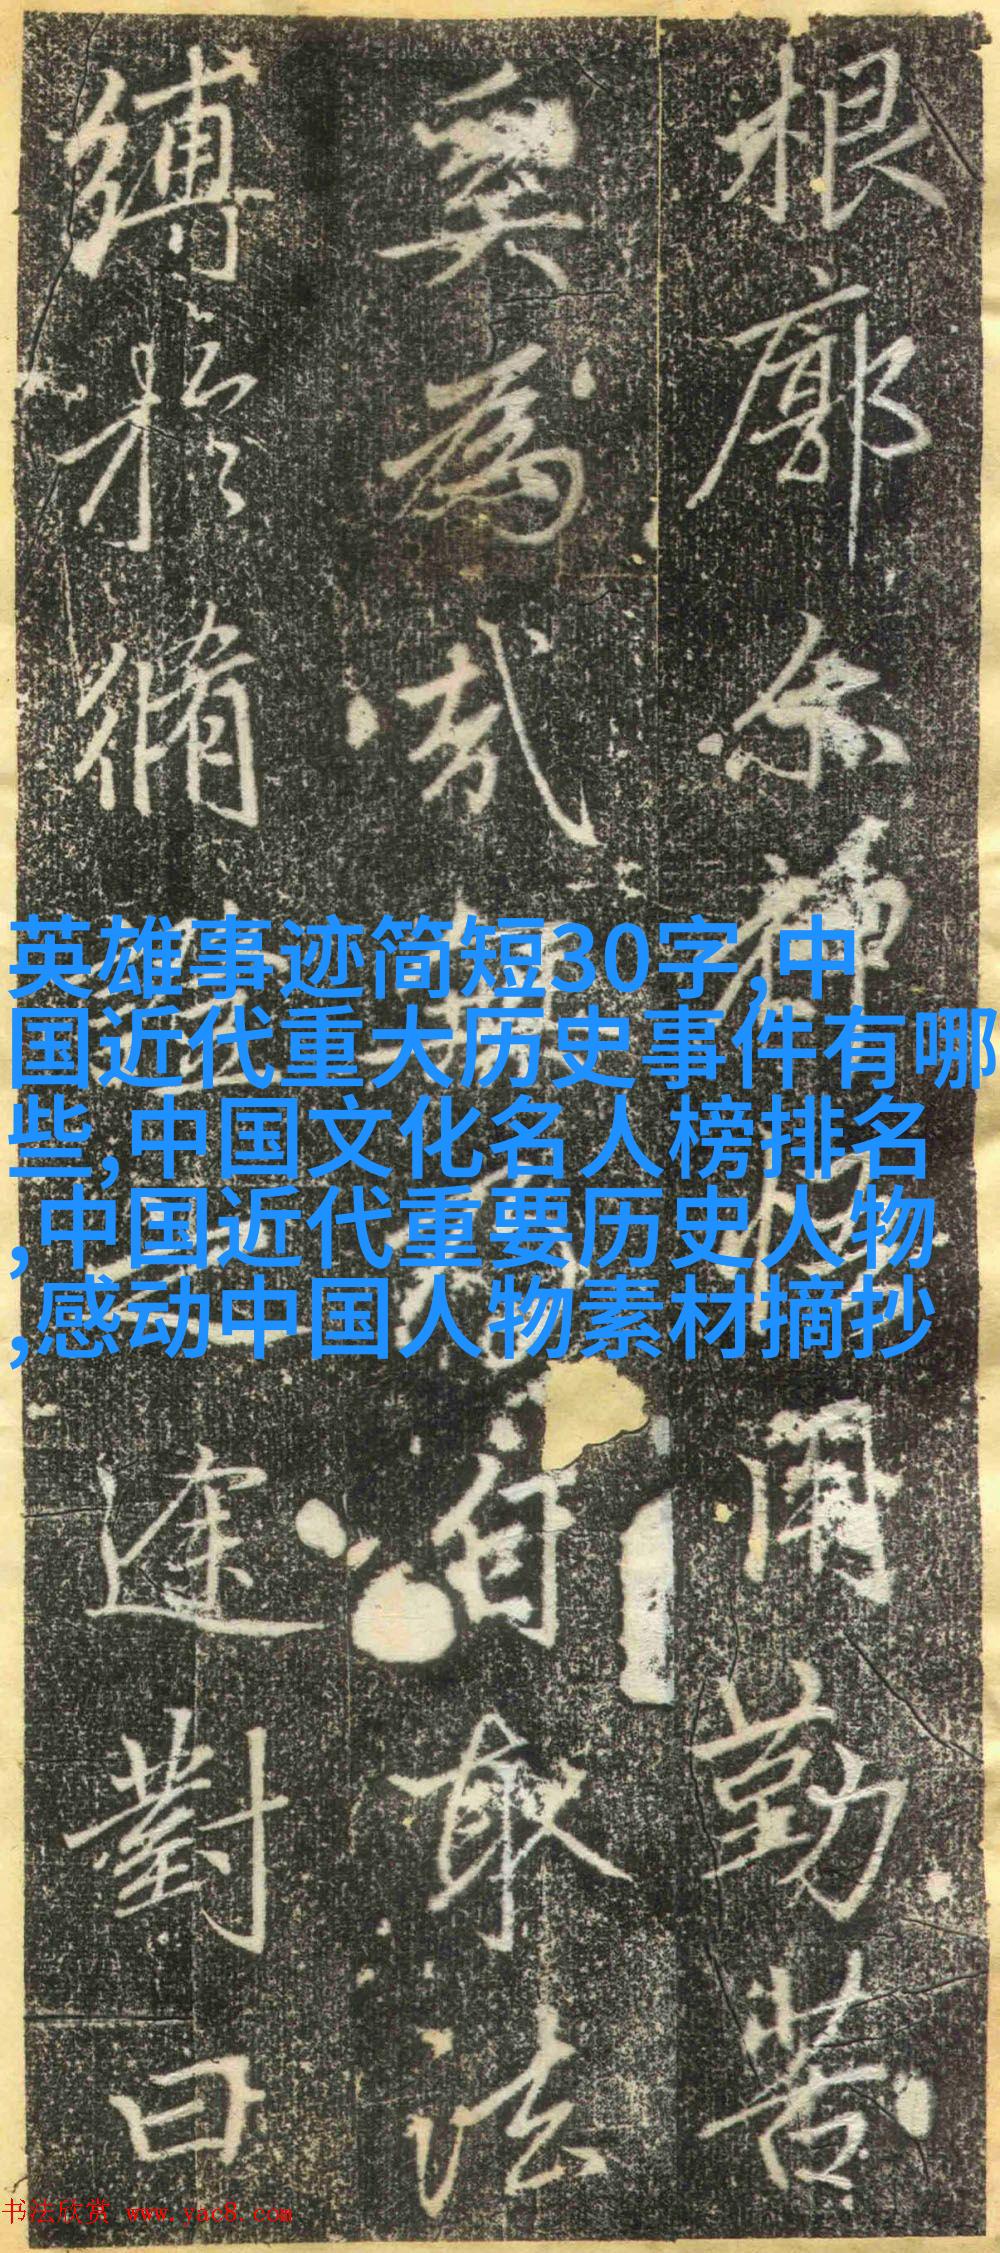 根廓尔穪
用勤苦
矣為式
自取法
縛於脩
途對曰
英雄事迹简短30字,中
国近代重大历史事件有哪
些,中国文化名人榜排名
,中国近代重要历史人物
,感动中国人物素材摘抄
书法欣赏 www.yac8.com